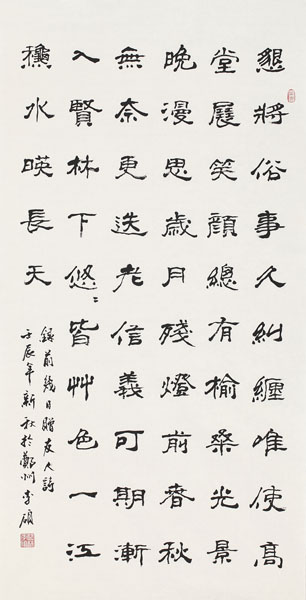 懇將俗事久糾纏唯使高
堂展笑顔總有榆桑光景
晚漫思歲月殘燈前春秋
無奈更迭老信義可期漸
入賢林下悠〻皆艸色一江
穐水暎長天
錄前績日贈友人詩
壬辰年新秋於鄭州李碩